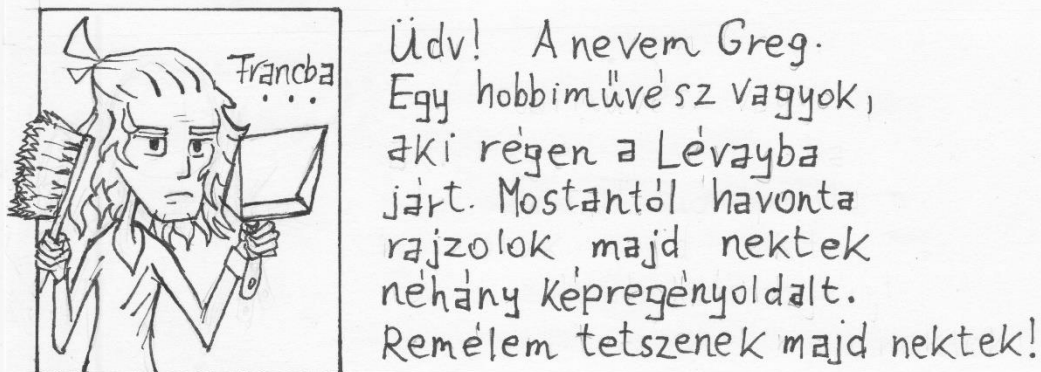 Francba
...
Üdv! A nevem Greg.
Egy hobbiművész vagyok,
aki régen a Lévayba
járt. Mostantól havonta
rajzolok majd nektek
néhány képregényoldalt.
Remélem tetszenek majd nektek!